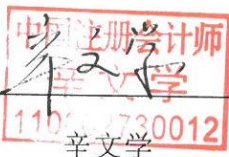 中国注册会计师
辛文学
辛文学
110 730012
辛文学